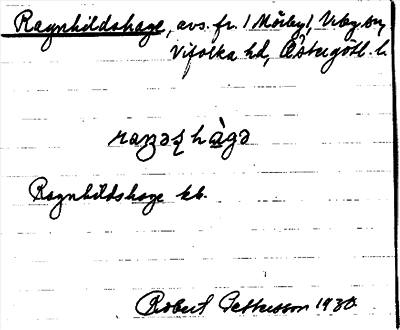 Ragnhildshage, avs. fr. 1 Mörby 1, Viby sn,
Vifolka hd, Östergötl. l.
raŋəʂ hàgə
Ragnhildshage kb.
Robert Pettersson 1930